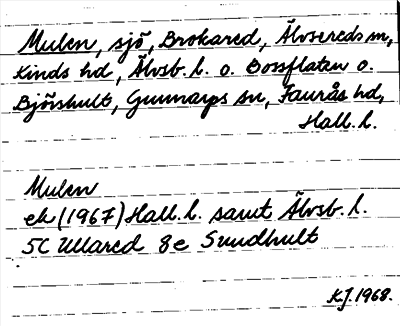 Mulen, sjö, Brokared, Älvsereds sn,
Kinds hd, Älvsb. l. o. Bossflaten o.
Björshult, Gunnarps sn, Faurås hd,
Hall. l.
Mulen
ek (1967) Hall. l. samt Älvsb. l.
5C Ullared 8e Sundhult
K.J. 1968.